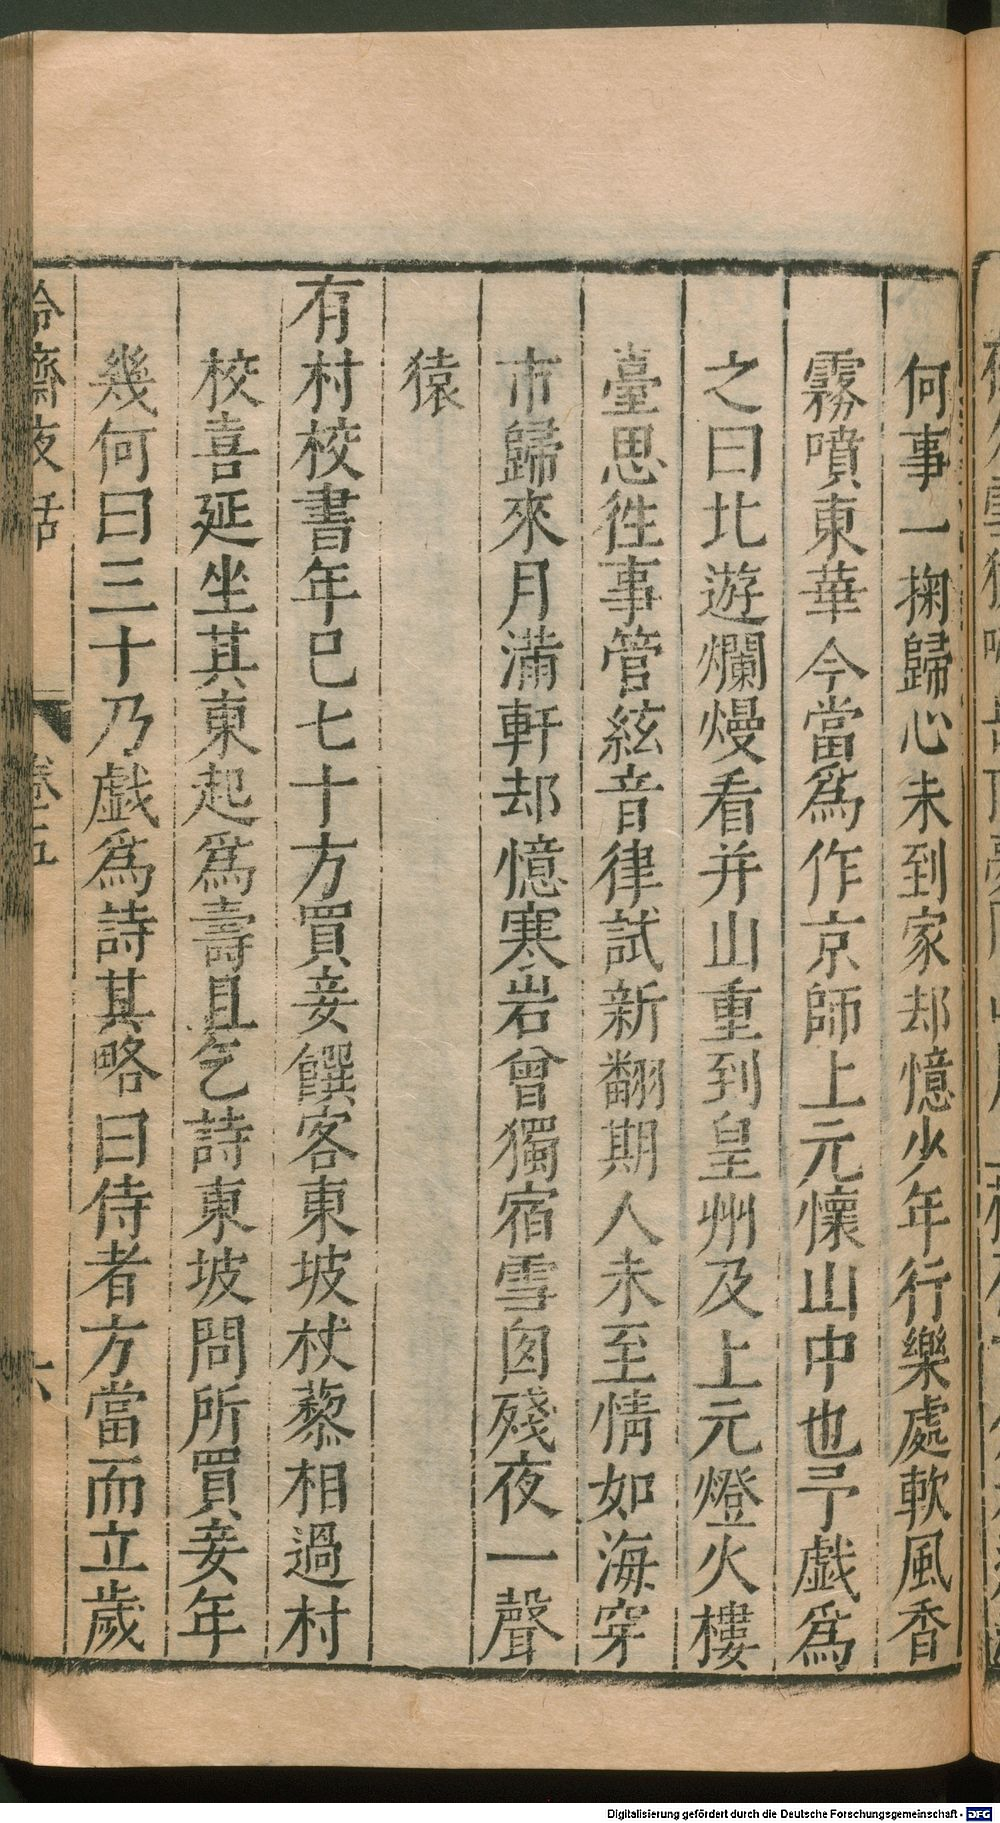 何事一掬歸心未到家却憶少年行樂處軟風香
霧噴東華今當爲作京師上元懷山中也予戯爲
之曰北遊爛熳看并山重到皇州及上元燈火樓
臺思徃事管絃音律試新翻期人未至情如海穿
市歸來月滿軒却憶寒岩曾獨宿雪囪殘夜一聲
猿
有村校書年巳七十方買妾饌客東坡杖藜相過村
校喜延坐其東起爲壽且乞詩東坡問所買妾年
幾何曰三十乃戯爲詩其略曰侍者方當而立歲
冷齋夜話 卷五 六
Digitalisierung gefördert durch die Deutsche Forschungsgemeinschaft - DFG